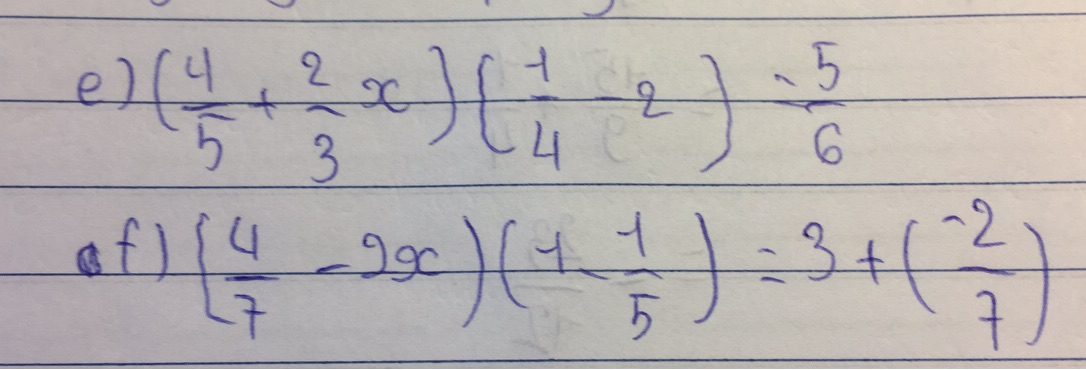 e) (4/5 + 2/3 x) (1/4 - 2) = 5/6
f) (4/7 - 2x) (1 - 1/5) = 3 + (-2/7)